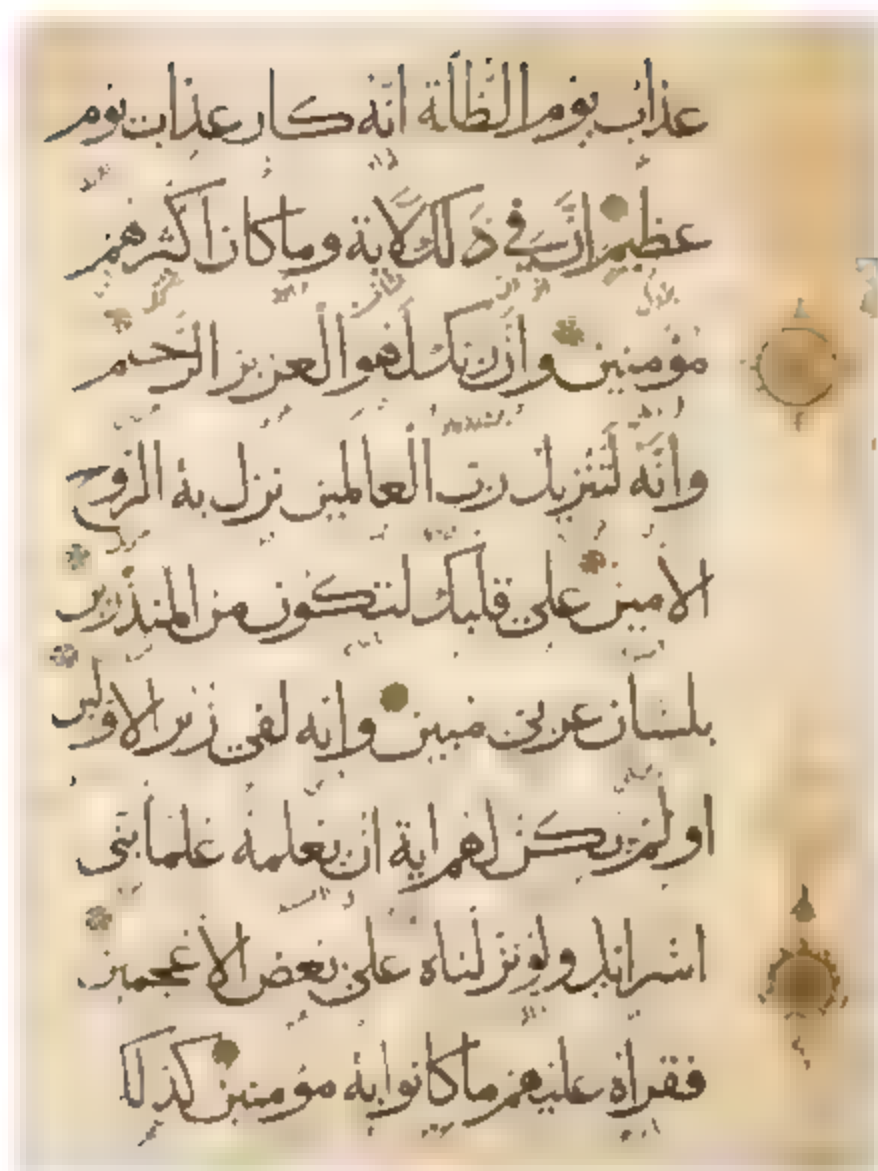 عذاب يوم الظلة انه كان عذاب يوم
عظيم ان في ذلك لاية وما كان اكثرهم
مؤمنين وان ربك لهو العزيز الرحيم
وانه لتنزيل رب العالمين نزل به الروح
الامين على قلبك لتكون من المنذرين
بلسان عربي مبين وانه لفي زبر الاولين
اولم يكن لهم اية ان يعلمه علما بني
اسرائيل ولو نزلناه على بعض الاعجمين
فقراه عليهم ما كانوا به مؤمنين كذلك